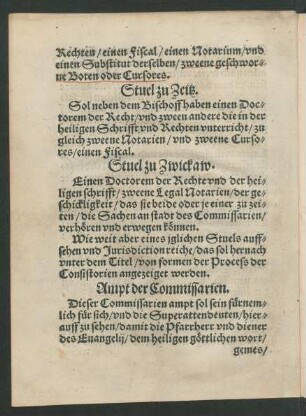 Rechten / einen Fiscal / einen Notarium / vnd
einen Substitut derselben / zweene geschwor-
ne Boten oder Cursores.
Stuel zu Zeitz.
Sol neben dem Bischoff haben einen Doc-
torem der Recht / vnd zween andere die in der
heiligen Schrifft vnd Rechten vnterricht / zu
gleich zweene Notarien / vnd zweene Curso-
res / einen Fiscal.
Stuel zu Zwickaw.
Einen Doctorem der Rechte vnd der hei-
ligen schrifft / zweene Legal Notarien / der ge-
schickligkeit / das sie beide oder je einer zu zei-
ten / die Sachen an stadt des Commissarien /
verhören vnd erwegen können.
Wie weit aber eines jglichen Stuels auff-
sehen vnd Jurisdiction reiche / das sol hernach
vnter dem Titel / von formen der Process der
Consistorien angezeiget werden.
Ampt der Commissarien.
Dieser Commissarien ampt sol sein fürnem-
lich für sich / vnd die Superattendenten / hier-
auff zu sehen / damit die Pfarrherr vnd diener
des Euangelij / dem heiligen göttlichen wort /
gemes /